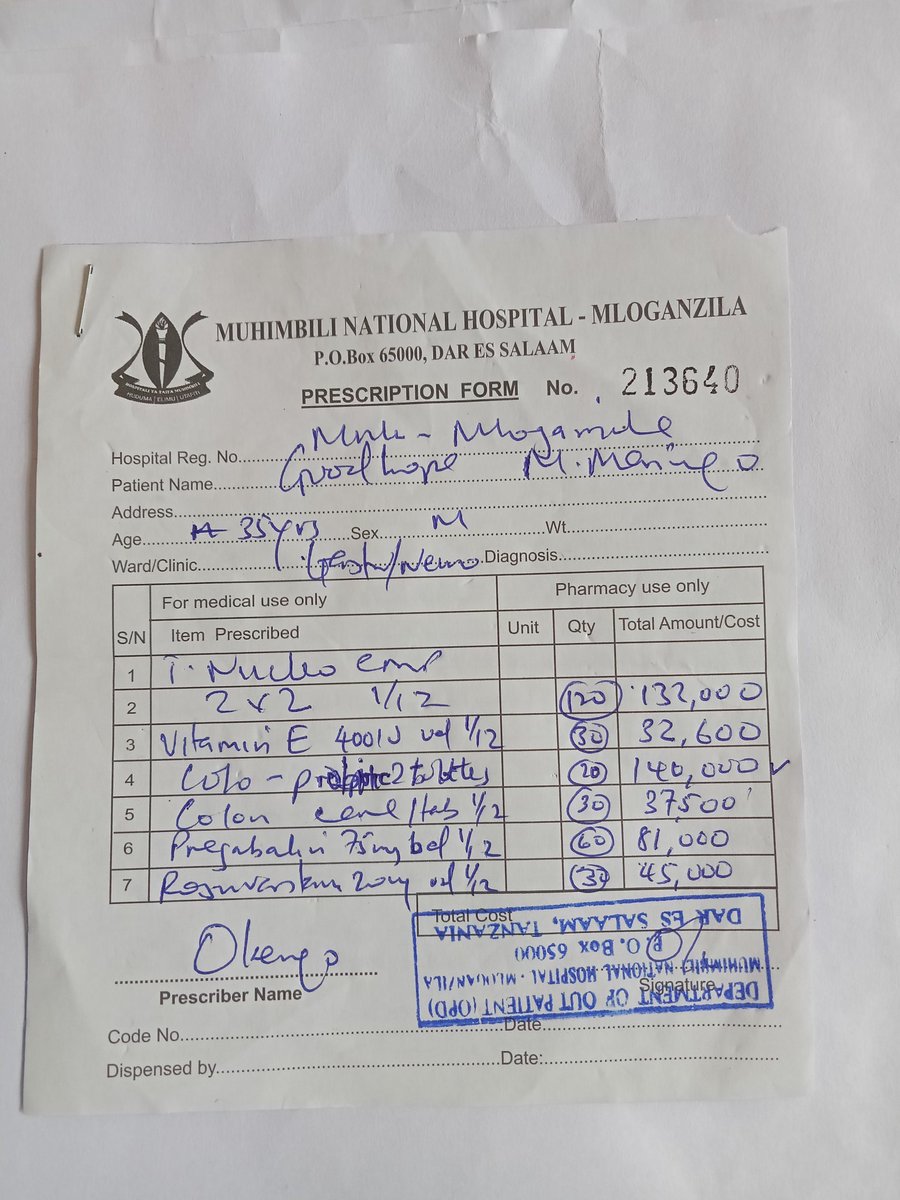 MUHIMBILI NATIONAL HOSPITAL - MLOGANZILA
P.O.Box 65000, DAR ES SALAAM
PRESCRIPTION FORM No. 213640
HOSPITALI YA TAIFA MUHIMBILI
HUDUMA | ELIMU | UTAFITI
Hospital Reg. No. Mnh -
Patient Name Goodhope M.
Address
Age 35yrs Sex M Wt.
Ward/Clinic Diagnosis
For medical use only Pharmacy use only
S/N Item Prescribed Unit Qty Total Amount/Cost
1 T. Nucleo CMP
2 2 x 2 1/12 120 132,000
3 Vitamin E 400IU od 1/12 30 32,600
4 Colo - 20 140,000 ✓
5 Colon /tab 1/2 30 37,500
6 Pregabalin 75mg bd 1/2 60 81,000
7 20mg od 1/12 30 45,000
Total Cost
DEPARTMENT OF OUT PATIENT (OPD)
MUHIMBILI NATIONAL HOSPITAL - MLOGANZILA
P.O. Box 65000
DAR ES SALAAM, TANZANIA
Okengo
Prescriber Name Signature
Code No. Date
Dispensed by Date: